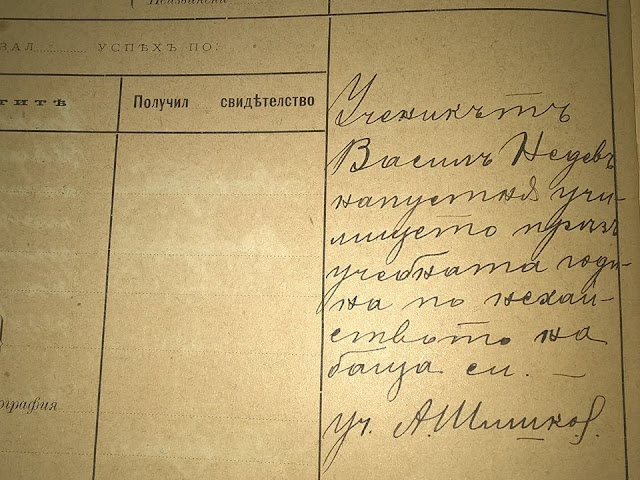 Неизвинени
ЗАЛ ........ УСПѢХЪ ПО:
титѣ
Получил свидѣтелство
ография
Ученикътъ
Василъ Недевъ
напустня учи-
лището презъ
учебната годи-
на по нехай-
ството на
баща си. —
уч. А. Шишков.